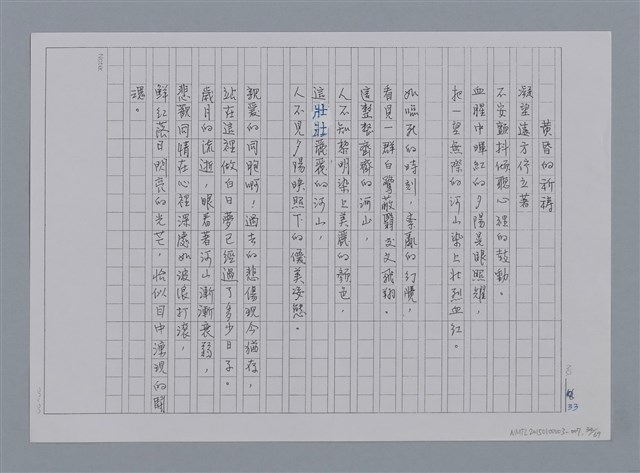 黃昏的祈禱
凝望遠方佇立著
不安顫抖傾聽心裡的鼓動。
血腥中暉紅的夕陽晃眼照耀,
把一望無際的河山染上壯烈血紅。
如臨死的時刻,紊亂的幻覺,
看見一群白鷺蔽翳交叉飛翔。
這整整齊齊的河山,
人不知黎明染上美麗的顏色,
這壯壯麗麗的河山,
人不見夕陽映照下的優美姿態。
親愛的同胞啊!過去的悲傷現今猶存,
站在這裡做白日夢已經過了多少日子。
歲月的流逝,眼看著河山漸漸衰弱,
悲歡同情在心裡深處如波浪打滾,
鮮紅落日閃亮的光芒,恰似目中湧現的鬪
魂。
Note:
33